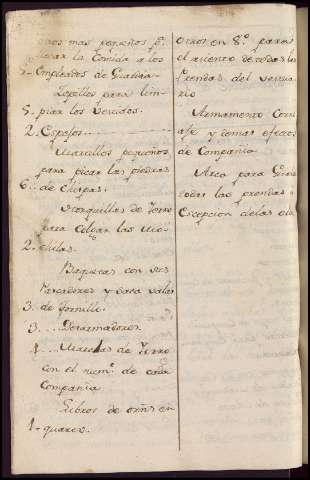 mas pequeños pª
llevar la Comida a los
Empleados de Guardia
Zepillos para lim-
5. piar los Vestidos.
2. Espejos
Martillos pequeños
para picar las piedras
6. de Chispas.
Horquillas de Fierro
para Colgar las Mo-
2. chilas.
Baquetas con sus
y Sacavalas
3. de Tornillo.
3. Desarmadores.
1. Marcas de Fierro
con el numº. de cada
Compañia
Libros de orñs en
1. quarto.
Otros en 8º. para
el asiento de todas las
Prendas del vestua-
rio
Armamento Corre-
aje y demas efectos
de Compañia.
Arca para Guar-
dar las prendas a
Escepcion de las de